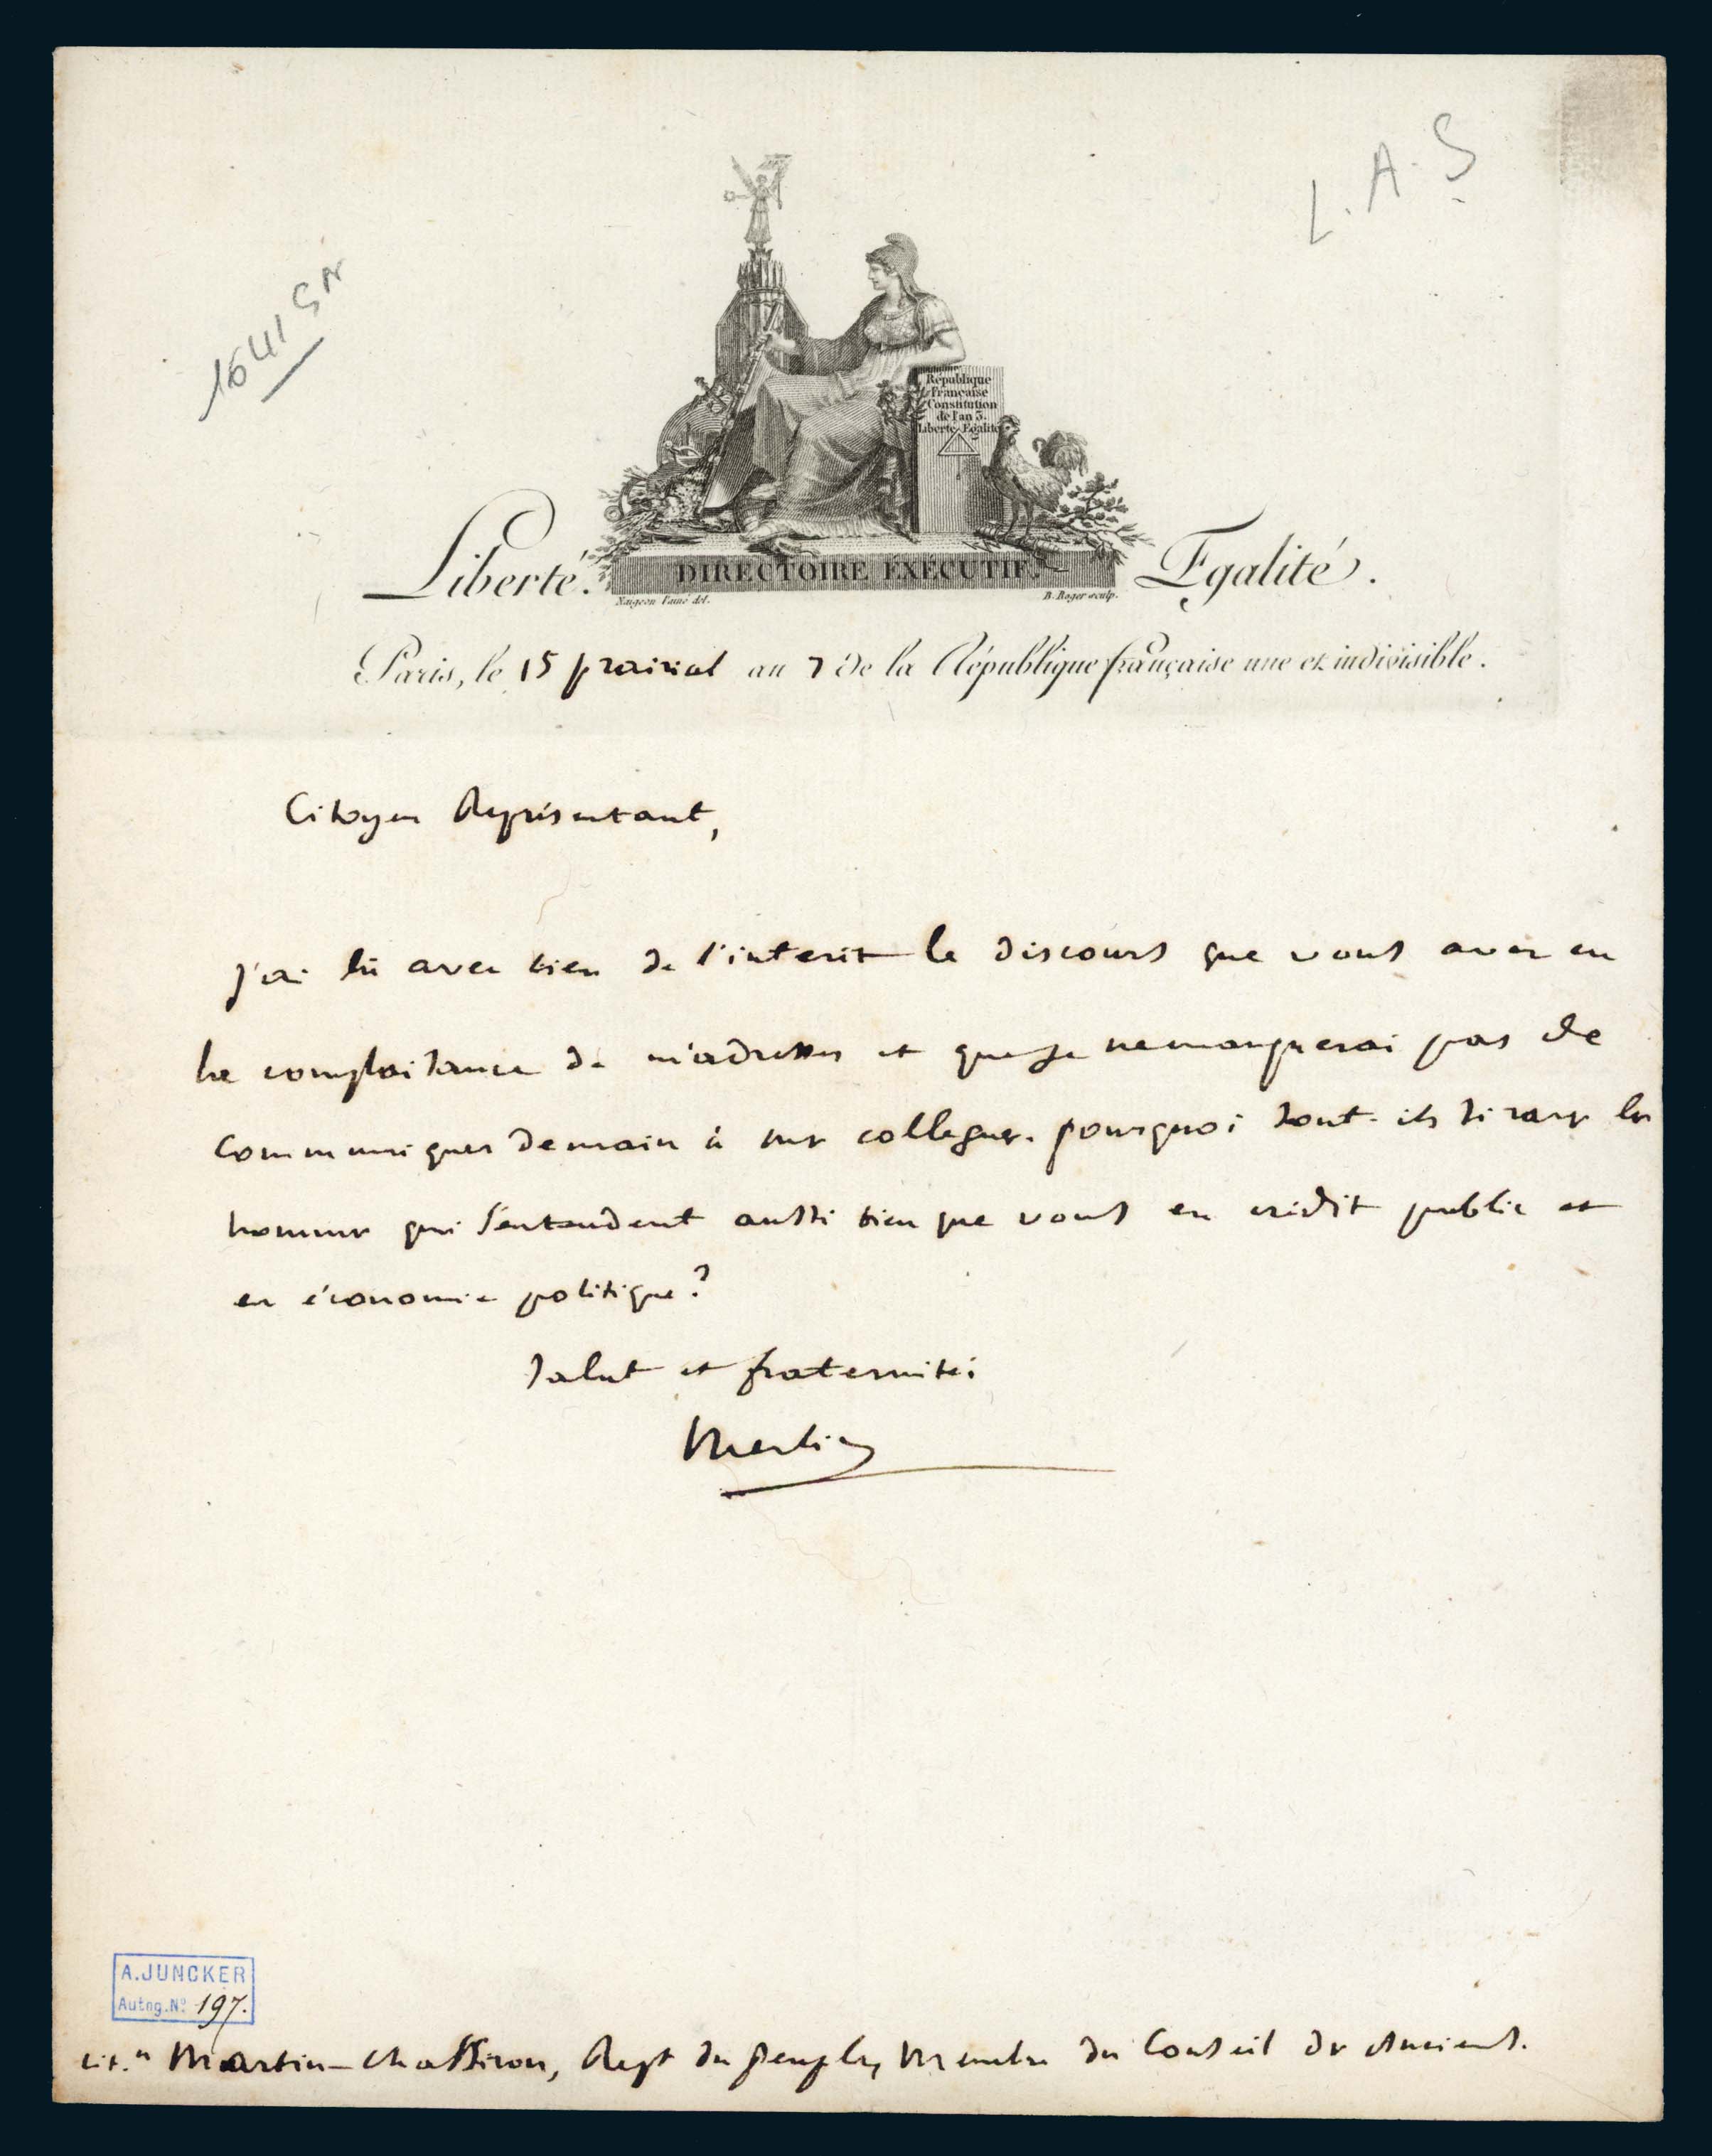 L.A.S
1641 SN
République
Française
Constitution
de l'an 3.
Liberté Egalité
Liberté. DIRECTOIRE EXÉCUTIF. Egalité.
Naigeon l'ainé del. B. Roger sculp.
Paris, le 15 prairial an 7 de la République française une et indivisible.
Citoyen Représentant,
j'ai lu avec bien de l'interêt le discours que vous avez eu
la complaisance de m'adresser et que je ne manquerai pas de
communiquer demain à mes collegues. pourquoi sont-ils si rares les
hommes qui s'entendent aussi bien que vous en crédit public et
en économie politique?
Salut et fraternité.
Merlin
A. JUNCKER
Autog. Nº 197.
cit.n Martin-Chassiron, Rept du peuple, Membre du Conseil des Anciens.